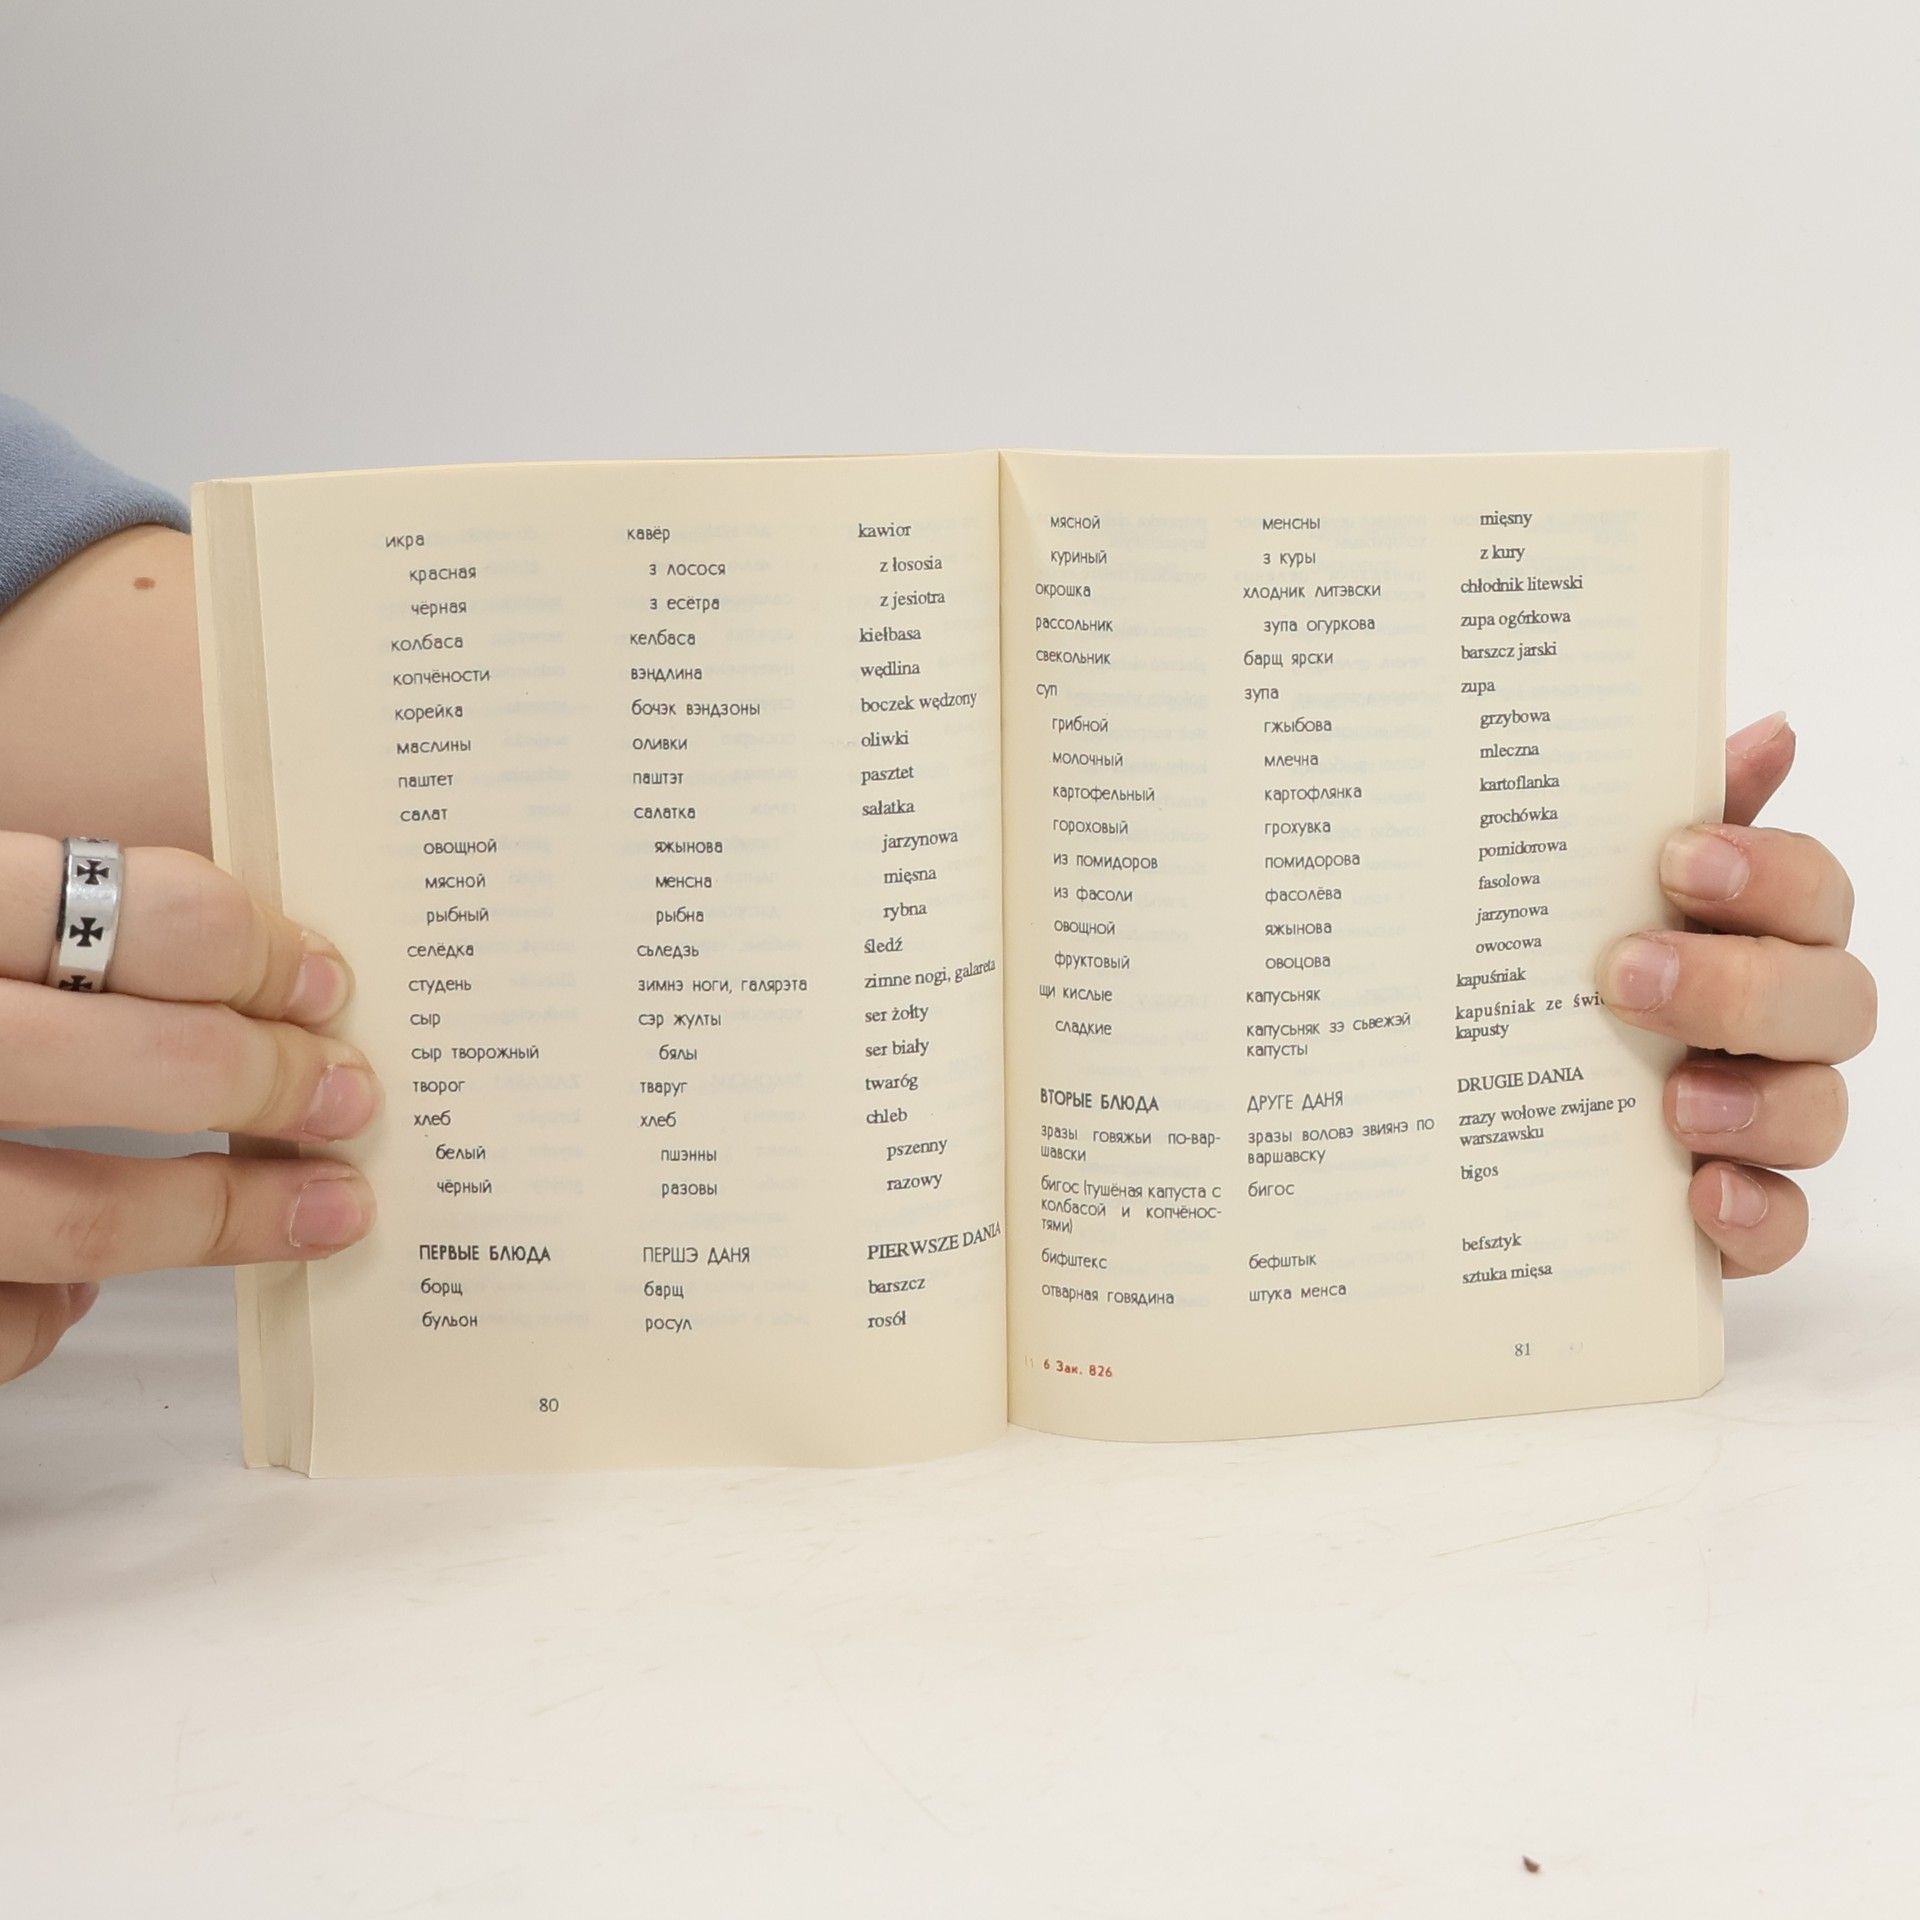 икра кавёр kawior
красная з лосося z łososia
чёрная з есётра z jesiotra
колбаса келбаса kiełbasa
копчёности вэндлина wędlina
корейка бочэк вэндзоны boczek wędzony
маслины оливки oliwki
паштет паштэт pasztet
салат салатка sałatka
овощной яжынова jarzynowa
мясной менсна mięsna
рыбный рыбна rybna
селёдка сьледзь śledź
студень зимнэ ноги, галярэта zimne nogi, galareta
сыр сэр жулты ser żołty
сыр творожный бялы ser biały
творог тваруг twaróg
хлеб хлеб chleb
белый пшэнны pszenny
чёрный разовы razowy
ПЕРВЫЕ БЛЮДА ПЕРШЭ ДАНЯ PIERWSZE DANIA
борщ барщ barszcz
бульон росул rosół
80
мясной менсны mięsny
куриный з куры z kury
окрошка хлодник литэвски chłodnik litewski
рассольник зупа огуркова zupa ogórkowa
свекольник барщ ярски barszcz jarski
суп зупа zupa
грибной гжыбова grzybowa
молочный млечна mleczna
картофельный картофлянка kartoflanka
гороховый грохувка grochówka
из помидоров помидорова pomidorowa
из фасоли фасолёва fasolowa
овощной яжынова jarzynowa
фруктовый овоцова owocowa
щи кислые капусьняк kapuśniak
сладкие капусьняк зэ сьвежэй kapuśniak ze
капусты kapusty
ВТОРЫЕ БЛЮДА ДРУГЕ ДАНЯ DRUGIE DANIA
зразы говяжьи по-вар- зразы воловэ звиянэ по zrazy wołowe zwijane po
шавски варшавску warszawsku
бигос (тушёная капуста с бигос bigos
колбасой и копчёнос-
тями)
бифштекс бефштык befsztyk
отварная говядина штука менса sztuka mięsa
6 Зак. 826
81